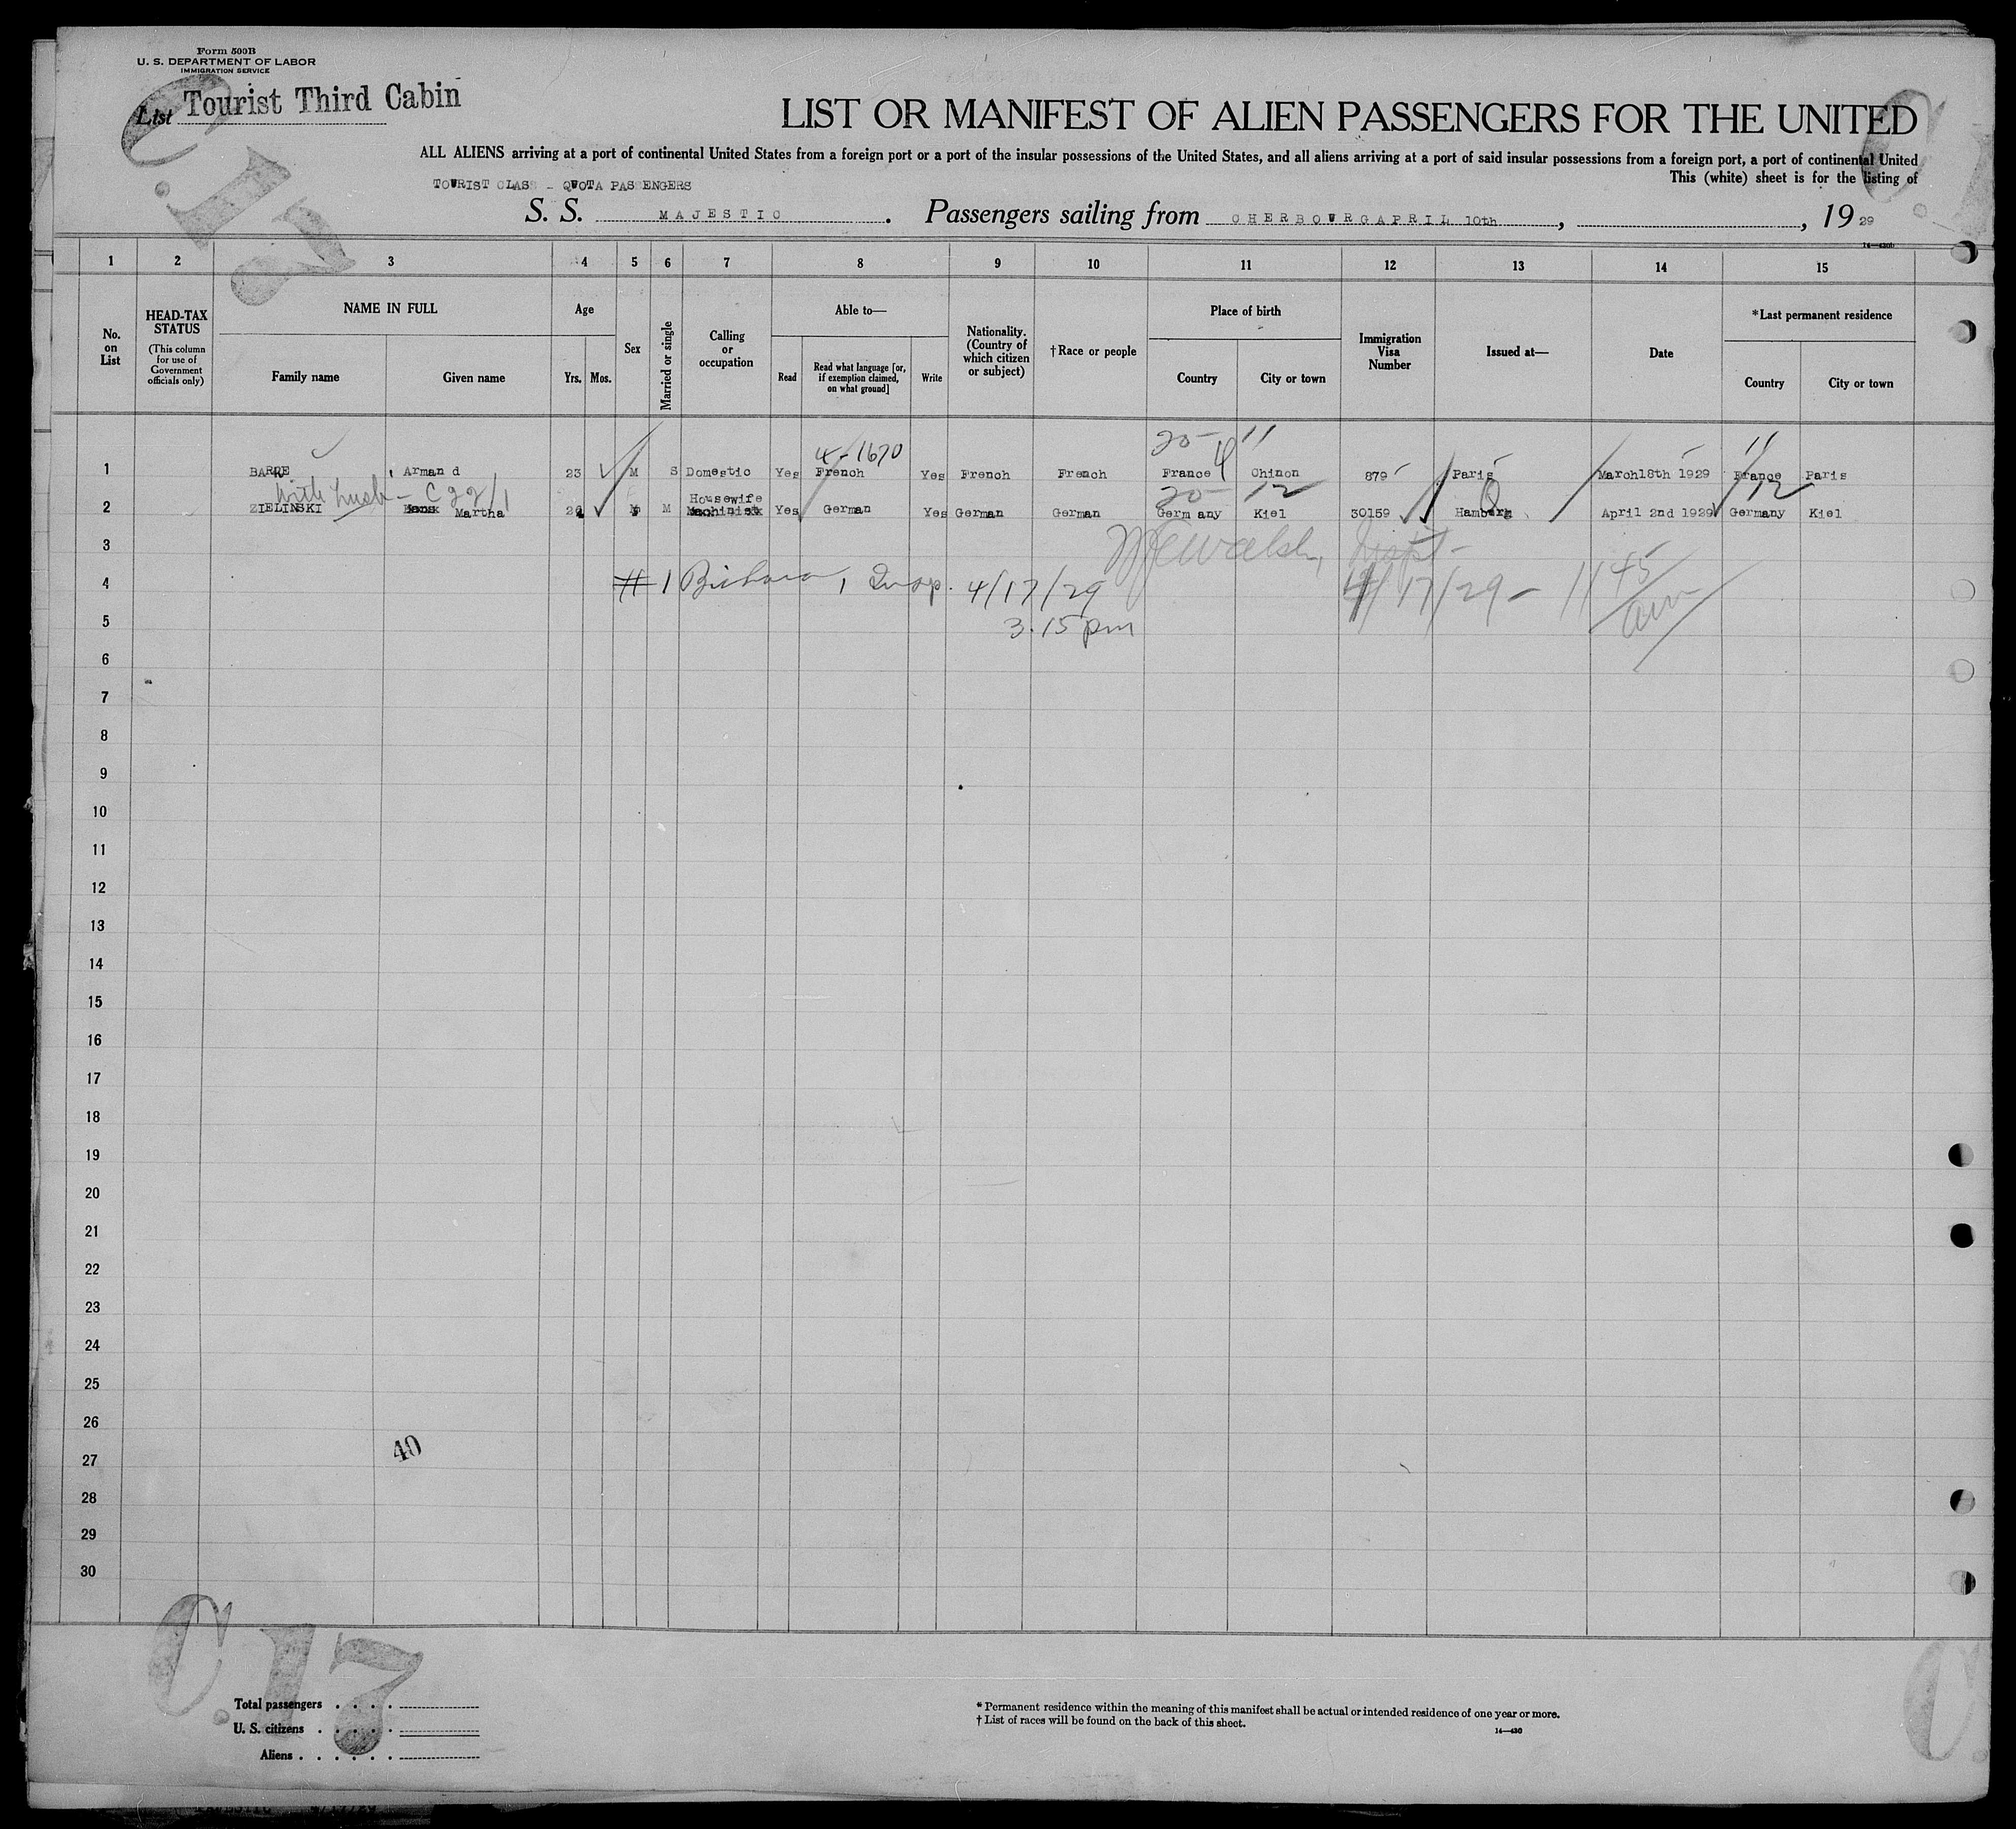 Form 500B
U. S. DEPARTMENT OF LABOR
IMMIGRATION SERVICE
List Tourist Third Cabin
LIST OR MANIFEST OF ALIEN PASSENGERS FOR THE UNITED
ALL ALIENS arriving at a port of continental United States from a foreign port or a port of the insular possessions of the United States, and all aliens arriving at a port of said insular possessions from a foreign port, a port of continental United
This (white) sheet is for the listing of
TOURIST CLASS - QUOTA PASSENGERS
S. S. MAJESTIC. Passengers sailing from CHERBOURG APRIL 10th, , 19 29
14-430b
C.17
C.1
1 2 3 4 5 6 7 8 9 10 11 12 13 14 15
No. on List
HEAD-TAX STATUS
(This column for use of Government officials only)
NAME IN FULL
Family name
Given name
Age
Yrs. Mos.
Sex
Married or single
Calling or occupation
Able to—
Read
Read what language [or, if exemption claimed, on what ground]
Write
Nationality. (Country of which citizen or subject)
†Race or people
Place of birth
Country
City or town
Immigration Visa Number
Issued at—
Date
*Last permanent residence
Country
City or town
4-1670 20- 4 11 11
1 BARRE Armand 23 M S Domestic Yes French Yes French French France Chinon 879 Paris March18th 1929 France Paris
with husb - C22/1 Housewife 20- 12 12
2 ZIELINSKI Martha 26 M Machinist Yes German Yes German German Germany Kiel 30159 Hamburg April 2nd 1929 Germany Kiel
3 Walsh, Inspt-
4 #1 Insp. 4/17/29 4/17/29- 1145 am
5 3.15 pm
6
7
8
9
10
11
12
13
14
15
16
17
18
19
20
21
22
23
24
25
26
27
40
28
29
30
C.17
C.
Total passengers . . . .
U. S. citizens . . . . .
Aliens . . . . . .
* Permanent residence within the meaning of this manifest shall be actual or intended residence of one year or more.
† List of races will be found on the back of this sheet.
14-430